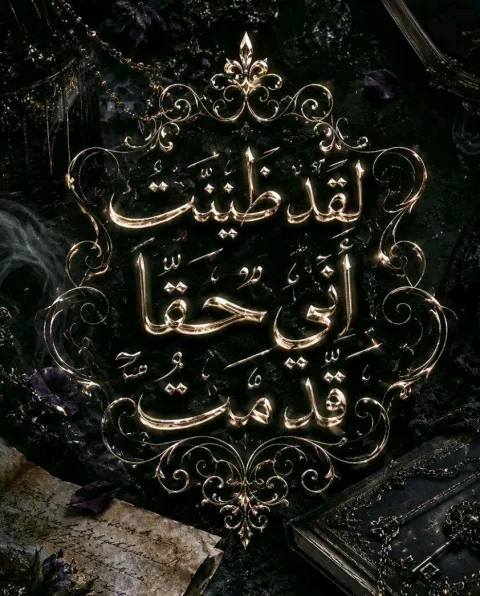 لقد ظننت
أنني حقاً
قد مت